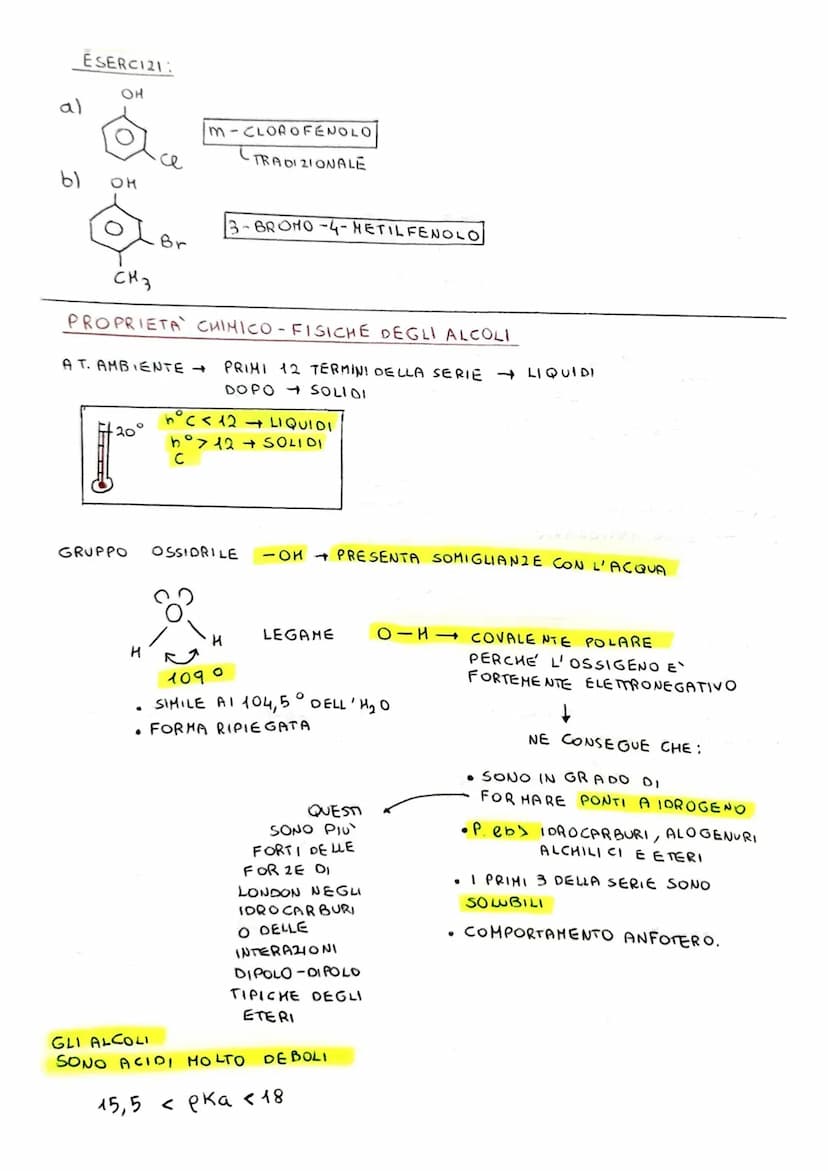 ESERCIZI:
a)
OH
Cl
m-CLOROFENOLO
TRADIZIONALE
b)
OH
Br
CH3
3-BROMO-4-METILFENOLO
PROPRIETÀ CHIMICO-FISICHE DEGLI ALCOLI
A T. AMBIENTE → PRIMI 12 TERMINI DELLA SERIE → LIQUIDI
DOPO → SOLIDI
20°
n°C < 12 → LIQUIDI
n° > 12 → SOLIDI
C
GRUPPO OSSIDRILE -OH → PRESENTA SOMIGLIANZE CON L'ACQUA
O
H H
109°
LEGAME O-H → COVALENTE POLARE
PERCHÉ L'OSSIGENO È
FORTEMENTE ELETTRONEGATIVO
• SIMILE AI 104,5° DELL'H2O
• FORMA RIPIEGATA
↓
NE CONSEGUE CHE:
• SONO IN GRADO DI
FORMARE PONTI A IDROGENO
QUESTI
SONO PIÙ
FORTI DELLE
FORZE DI
LONDON NEGLI
IDROCARBURI
O DELLE
INTERAZIONI
DIPOLO-DIPOLO
TIPICHE DEGLI
ETERI
• P. eb > IDROCARBURI, ALOGENURI
ALCHILICI E ETERI
• I PRIMI 3 DELLA SERIE SONO
SOLUBILI
• COMPORTAMENTO ANFOTERO.
GLI ALCOLI
SONO ACIDI MOLTO DEBOLI
15,5 < pKa < 18